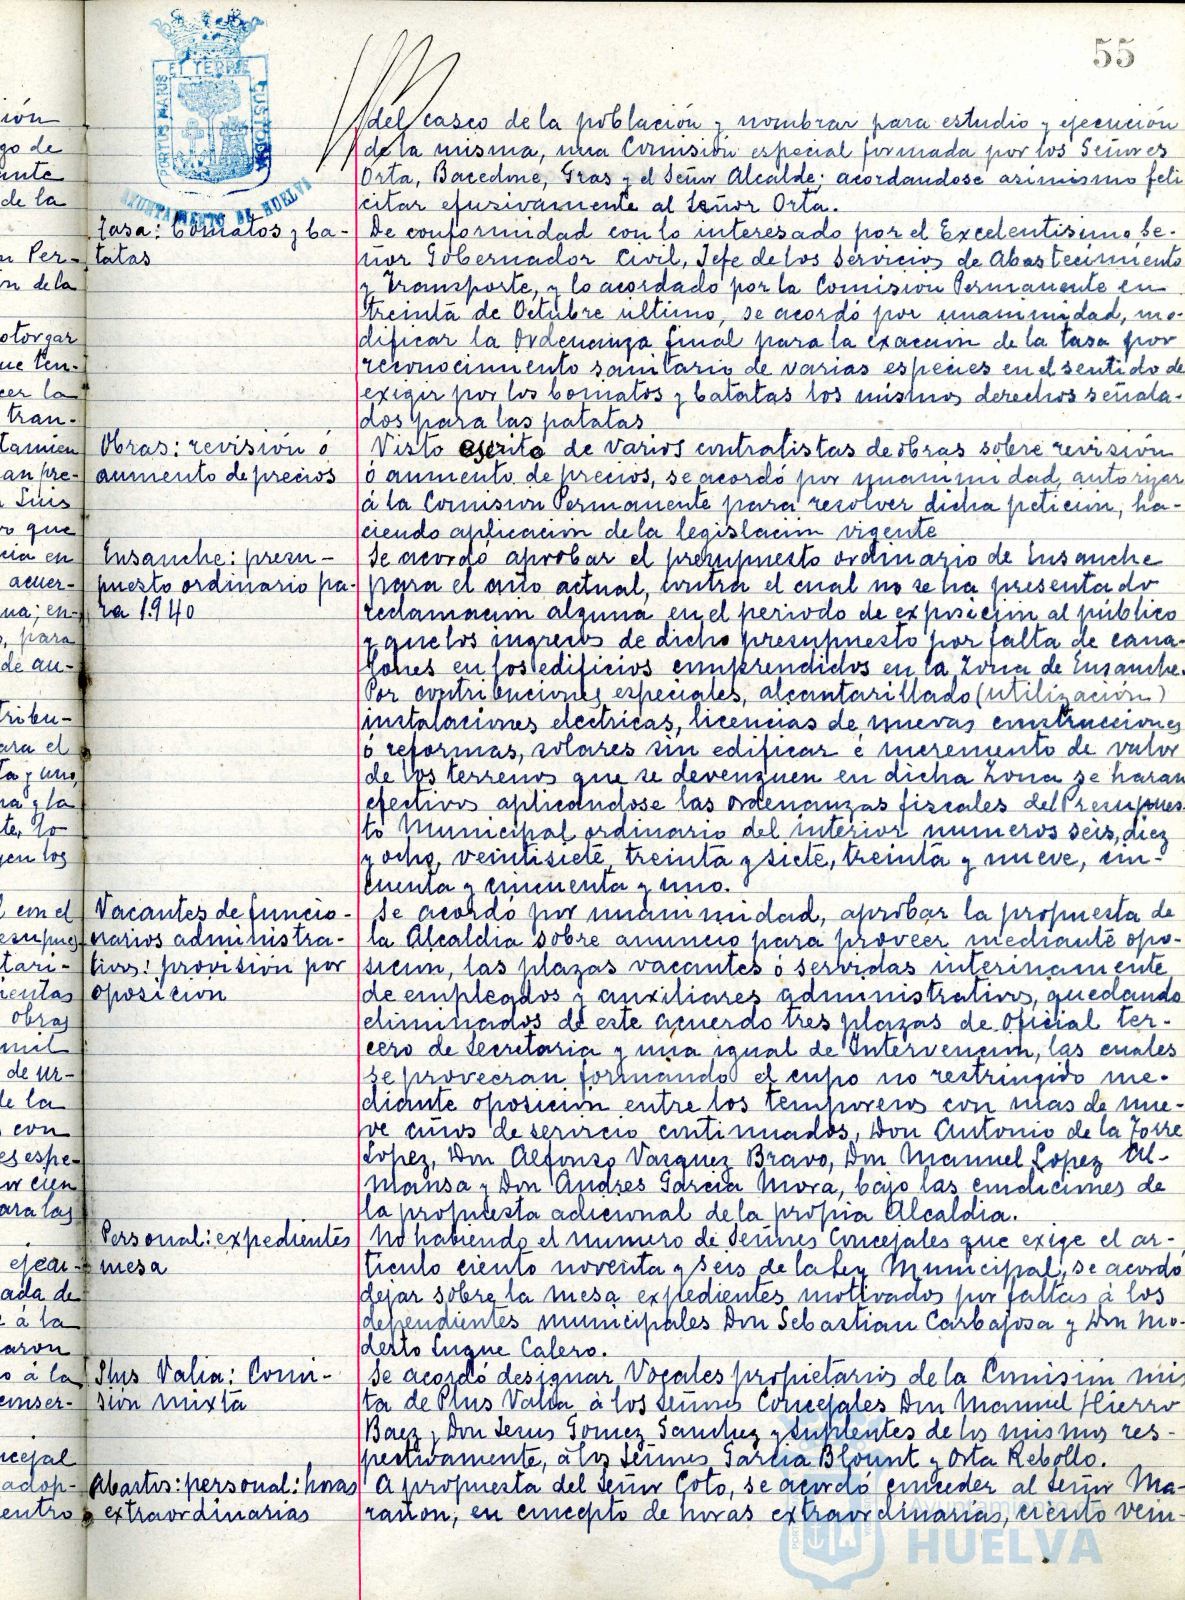 55
PORTUS MARIS ET TERRE CUSTODIA
AYUNTAMIENTO DE HUELVA
del casco de la población y nombrar para estudio y ejecución
de la misma, una Comisión especial formada por los Señores
Orta, Bacedone, Gras y el Señor Alcalde; acordandose asimismo feli
citar efusivamente al Señor Orta.
Tasa: tomatos y ba-
tatas
De conformidad con lo interesado por el Excelentisimo Se-
ñor Gobernador Civil, Jefe de los Servicios de Abastecimiento
y Transporte, y lo acordado por la Comision Permanente en
treinta de Octubre ultimo, se acordó por unanimidad, mo-
dificar la Ordenanza final para la exaccion de la tasa por
reconocimiento sanitario de varias especies en el sentido de
exigir por los tomatos y batatas los mismos derechos señala-
dos para las patatas
Obras: revisión ó
aumento de precios
Visto escrito de varios contratistas de obras sobre revisión
ó aumento de precios, se acordó por unanimidad, autorizar
á la Comision Permanente para resolver dicha peticion, ha-
ciendo aplicación de la legislacion vigente
Ensanche: presu-
puesto ordinario pa-
ra 1940
Se acordó aprobar el presupuesto ordinario de Ensanche
para el año actual, contra el cual no se ha presentado
reclamacion alguna en el periodo de exposición al público
y que los ingresos de dicho presupuesto por falta de cana-
lones en los edificios comprendidos en la Zona de Ensanche.
Por contribuciones especiales, alcantarillado (utilización)
instalaciones electricas, licencias de nuevas construcciones
ó reformas, solares sin edificar é incremento de valor
de los terrenos que se devenguen en dicha Zona se haran
efectivos aplicandose las ordenanzas fiscales del Presupues
to Municipal ordinario del interior numeros seis, diez
y ocho, veintisiete, treinta y siete, treinta y nueve, cin-
cuenta y cincuenta y uno.
Vacantes de funcio-
narios administra-
tivos: provisión por
oposicion
Se acordó por unanimidad, aprobar la propuesta de
la Alcaldia sobre anuncio para proveer mediante opo-
sicion, las plazas vacantes ó servidas interinamente
de empleados y auxiliares administrativos, quedando
eliminados de este acuerdo tres plazas de Oficial ter-
cero de Secretaria y una igual de Intervencion, las cuales
se proveeran formando el cupo no restringido me-
diante oposicion entre los temporeros con mas de nue-
ve años de servicio continuados, Don Antonio de la Torre
Lopez, Don Alfonso Vazquez Bravo, Don Manuel Lopez Al-
mansa y Don Andres Garcia Mora, bajo las condiciones de
la propuesta adicional de la propia Alcaldia.
Personal: expedientes
mesa
No habiendo el numero de Señores Concejales que exige el ar-
ticulo ciento noventa y seis de la Ley Municipal, se acordó
dejar sobre la mesa expedientes motivados por faltas á los
dependientes municipales Don Sebastian Carbajosa y Don Mo-
desto Luque Calero.
Plus Valia: Comi-
sión mixta
Se acordó designar Vocales propietarios de la Comisión mis
ta de Plus Valia á los señores Concejales Don Manuel Hierro
Baez y Don Jesus Gomez Sanchez y Suplentes de los mismos res-
pectivamente, á los Señores Garcia Blount y Orta Rebollo.
Abastos: personal: horas
extraordinarias
A propuesta del Señor Coto, se acordó conceder al Señor Ma-
rañon, en concepto de horas extraordinarias, ciento vein-
Ayuntamiento de
HUELVA